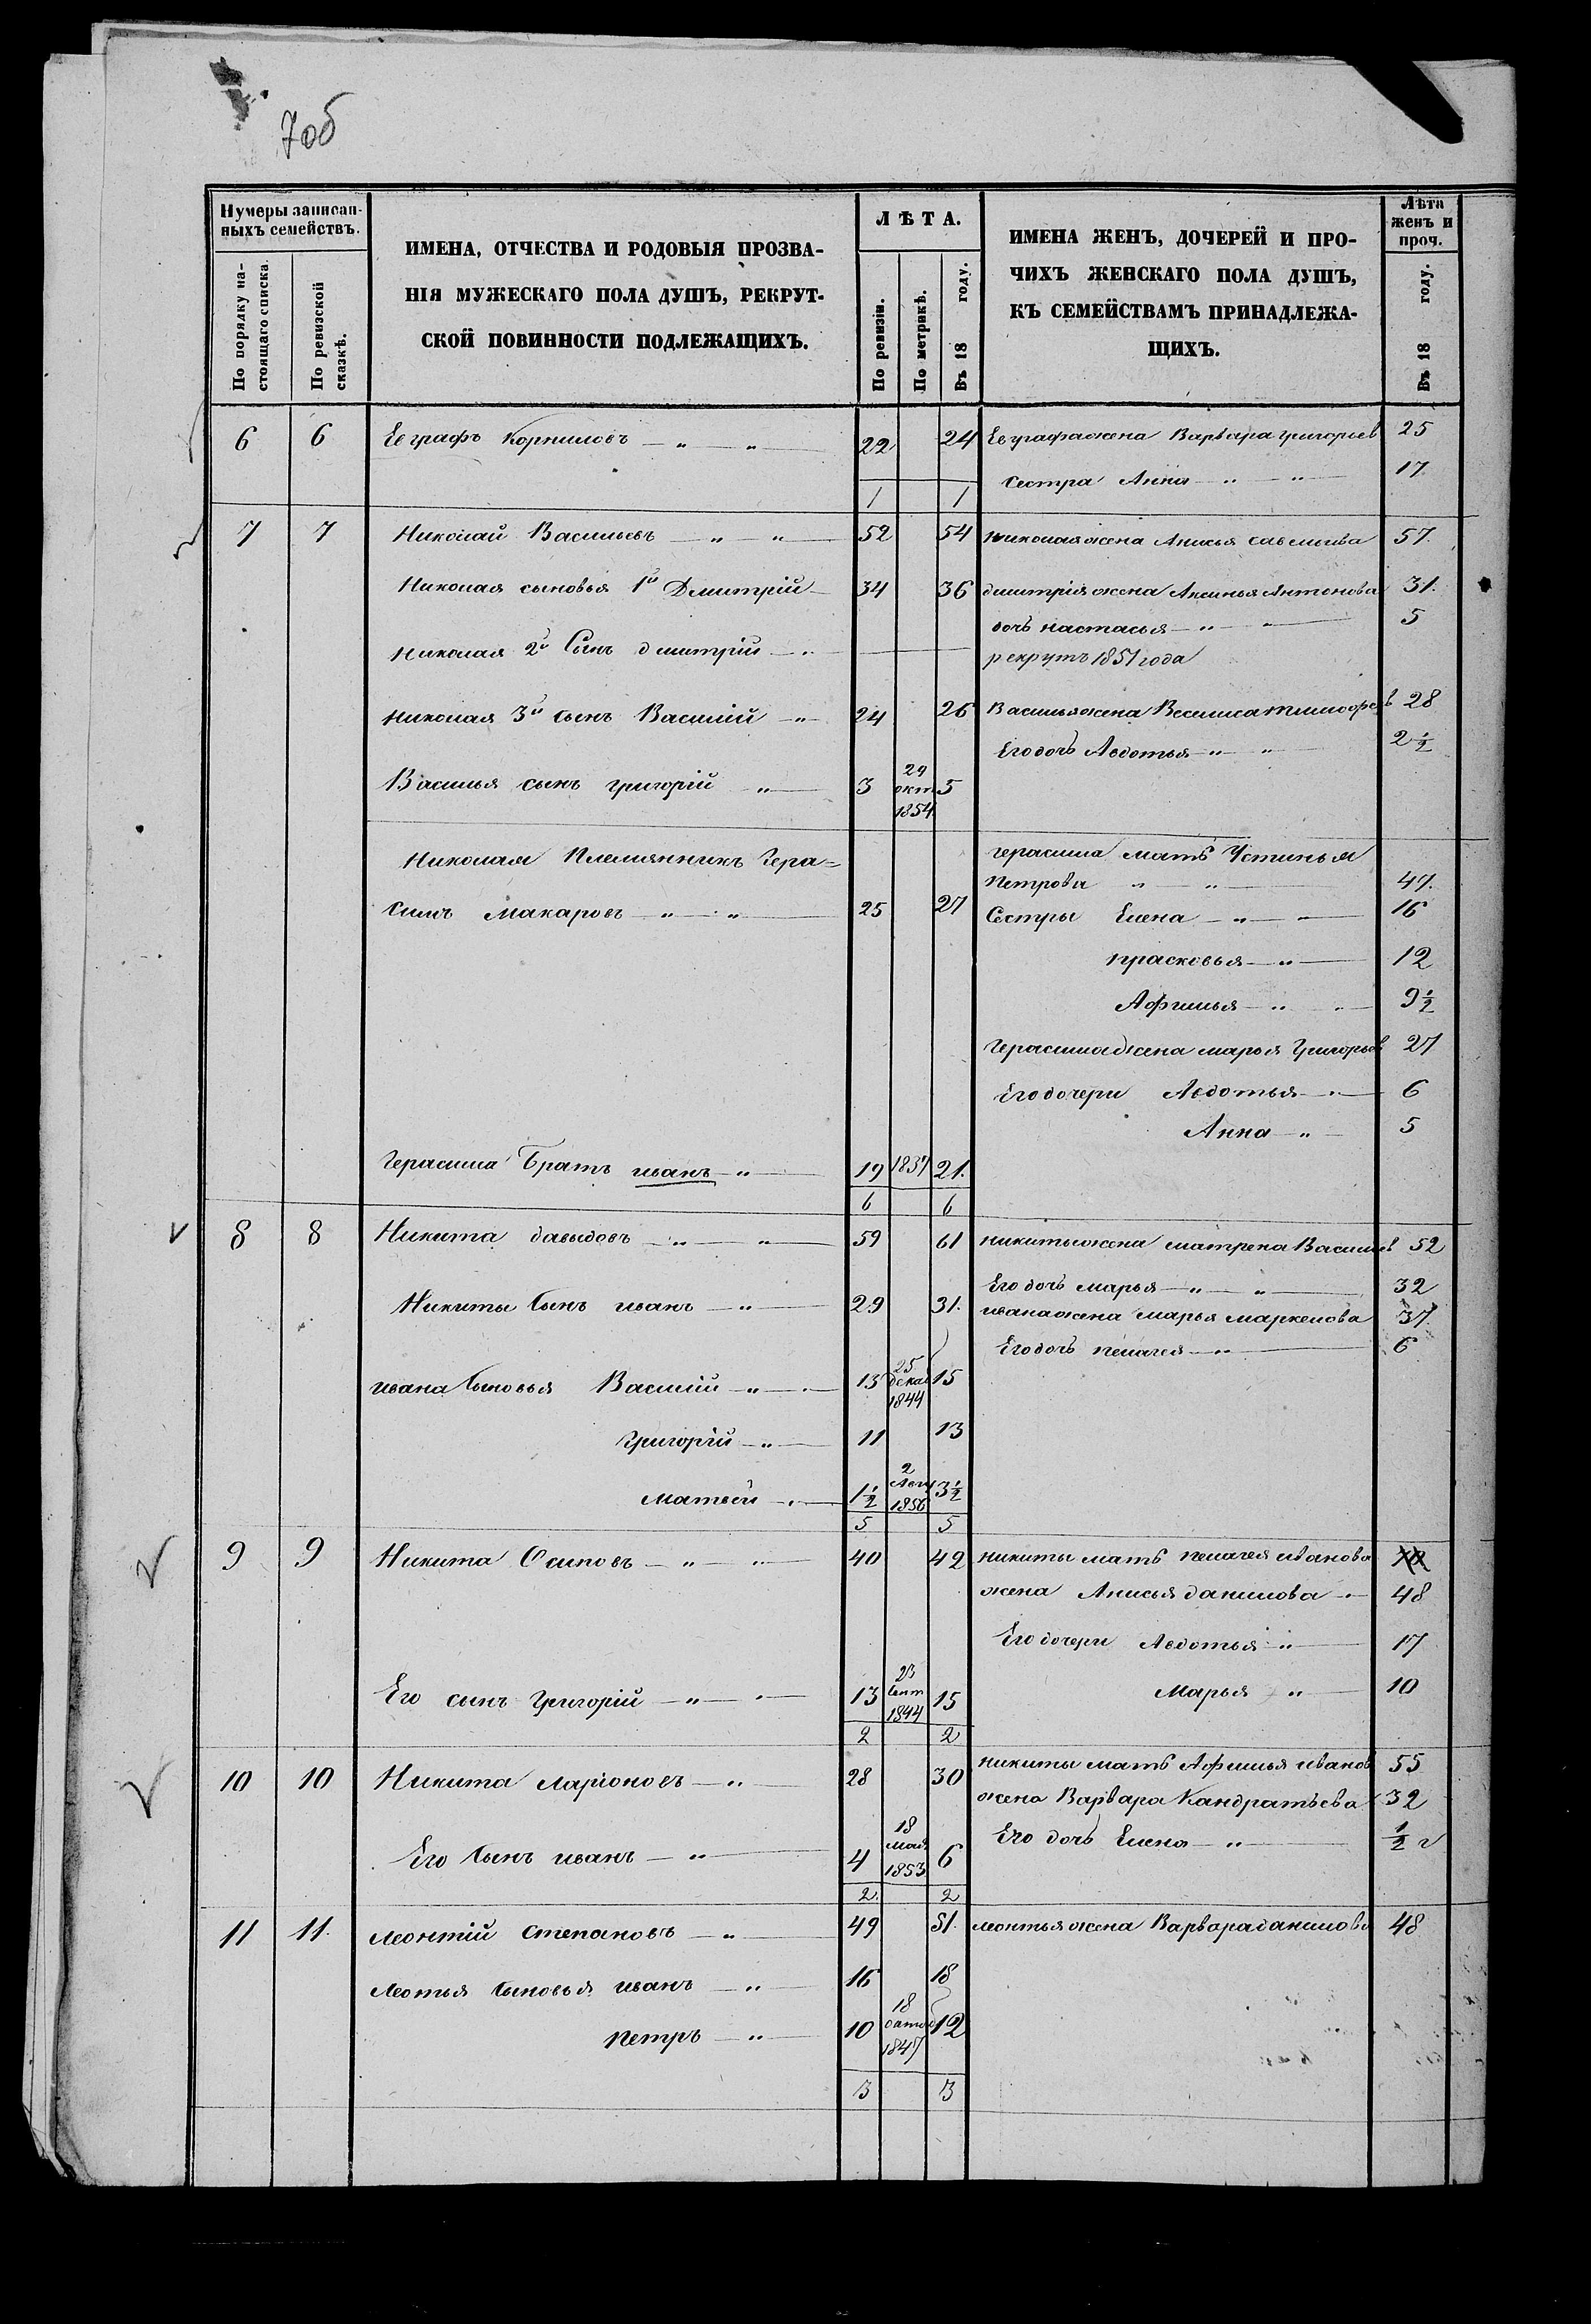 7об
Нумеры записан-
ныхъ семействъ.
По порядку на-
стоящаго списка.
По ревизской
сказкѣ.
ИМЕНА, ОТЧЕСТВА И РОДОВЫЯ ПРОЗВА-
НІЯ МУЖЕСКАГО ПОЛА ДУШЪ, РЕКРУТ-
СКОЙ ПОВИННОСТИ ПОДЛЕЖАЩИХЪ.
ЛѢТА.
По ревизіи.
По метрикѣ.
Въ 18 году.
ИМЕНА ЖЕНЪ, ДОЧЕРЕЙ И ПРО-
ЧИХЪ ЖЕНСКАГО ПОЛА ДУШЪ,
КЪ СЕМЕЙСТВАМЪ ПРИНАДЛЕЖА-
ЩИХЪ.
Лѣта
женъ и
проч.
Въ 18 году.
6 6 Евграфъ Корниловъ — " — " — 22 24 Евграфа жена Варвара григорьев 25
сестра Анна — " — " — 17
1 1
7 7 Николай Васильевъ — " — " — 52 54 николая жена Анисья савельива 57.
Николая сыновья 1й Дмитрій — 34 36 дмитрія жена Аксинья Антонова 31.
дочь настасья — " — " — 5
николая 2й Сынъ дмитрій — " — рекрутъ 1851 года
николая 3й сынъ Василій — " — 24 26 Васильяжена 28
Его дочь Авдотья — " — " 2½
Василья сынъ григорій — " — 3 29 окт 1854. 5
Николая Племянникъ Гера= герасима мать Устинья
Петрова " — " — 47.
симъ Макаровъ — " — " — 25 27 Сестры Елена — " — " — 16
прасковья — " — 12
Афимья — " — " — 9½
Герасима жена марья Григорьев 27
Его дочери Авдотья — " — 6
Анна — " — 5
Герасима Братъ иванъ — " — 19 1837 21.
6 6
8 8 Никита давыдовъ — " — " — 59 61 никиты жена матрена Василив 52
Его дочь марья — " — " — 32
Никиты сынъ иванъ — " — 29 31. ивана жена марья маркелова 37.
Его дочь пелагея — " — 6
ивана сыновья Василий — " — 13 25 декаб 1844 15
Григорій — " — 11 13
матвей — " — 1½ 2 Авгу 1856 3½
5 5
9 9 Никита Осиповъ — " — " — 40 42 никиты мать пелагея иванова
жена Анисья данилова — " — 48
Его дочери Авдотья — " — 17
Его сынъ григорій — " — " — 13 23 Сент 1844 15 Марья — " — 10
2 2
10 10 Никита ларіоновъ — " — 28 30 никиты мать Афимья иванов 55
жена Варвара Кандратьева 32
Его дочь Елена — " — ½ г
Его сынъ иванъ — " — 4 18 мая 1853 6
2. 2
11 11. леонтій степановъ — " — 49 51. леонтья жена Варвара данилова 48
Леотья сыновья иванъ — " — 16 18
петръ — " — 10 18 1847 12
3 3